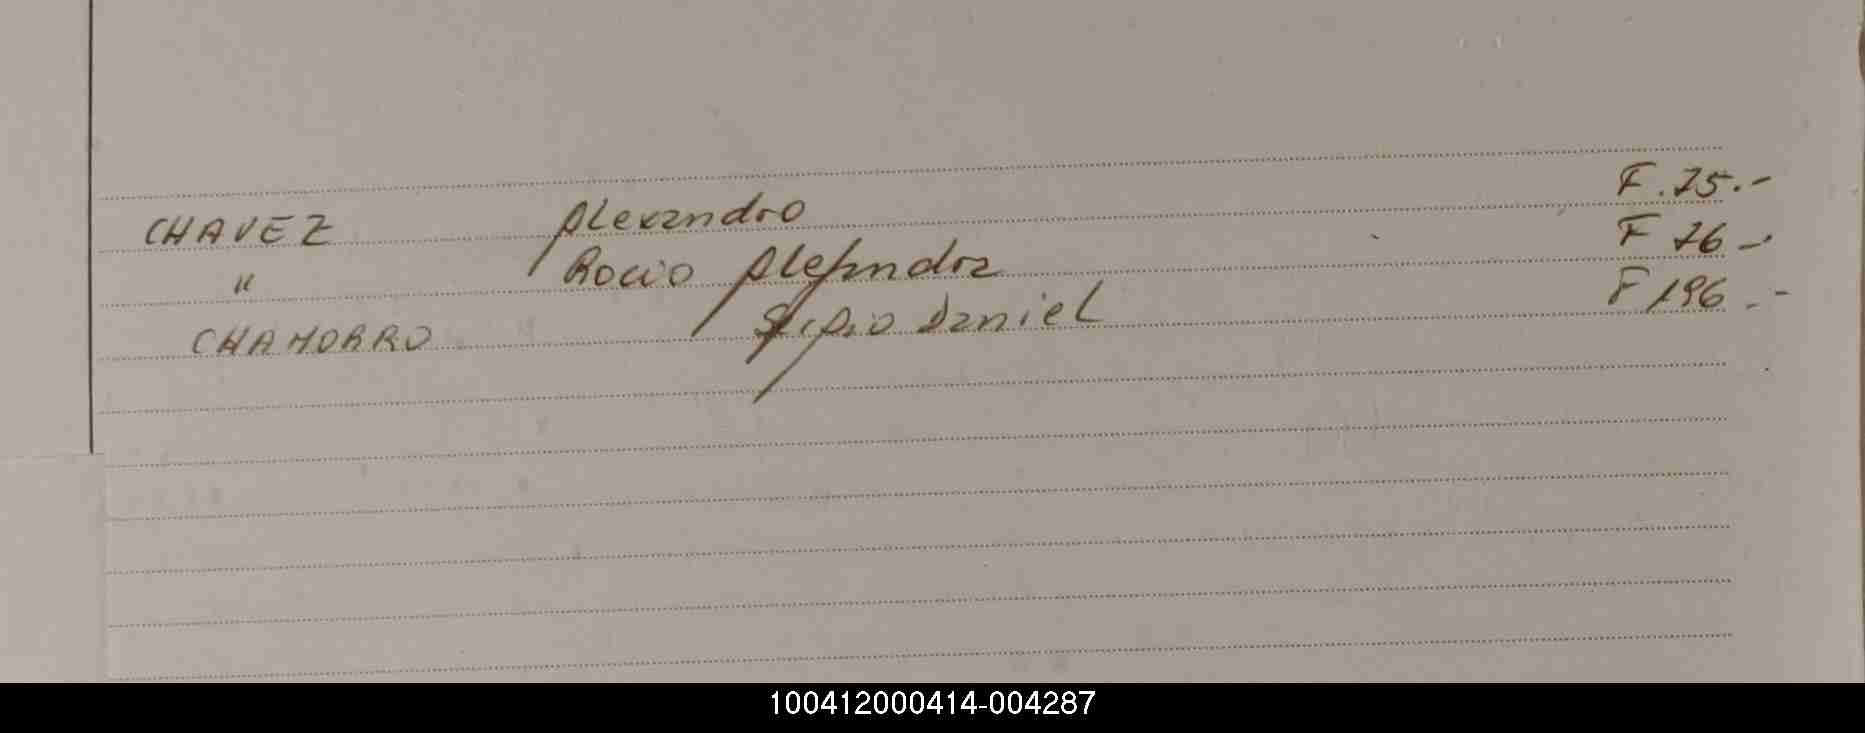 CHAVEZ Alexandro F. 75.-
" Rocio Alejandra F 76 -
CHAMORRO Sergio Daniel F 196 .-
100412000414-004287